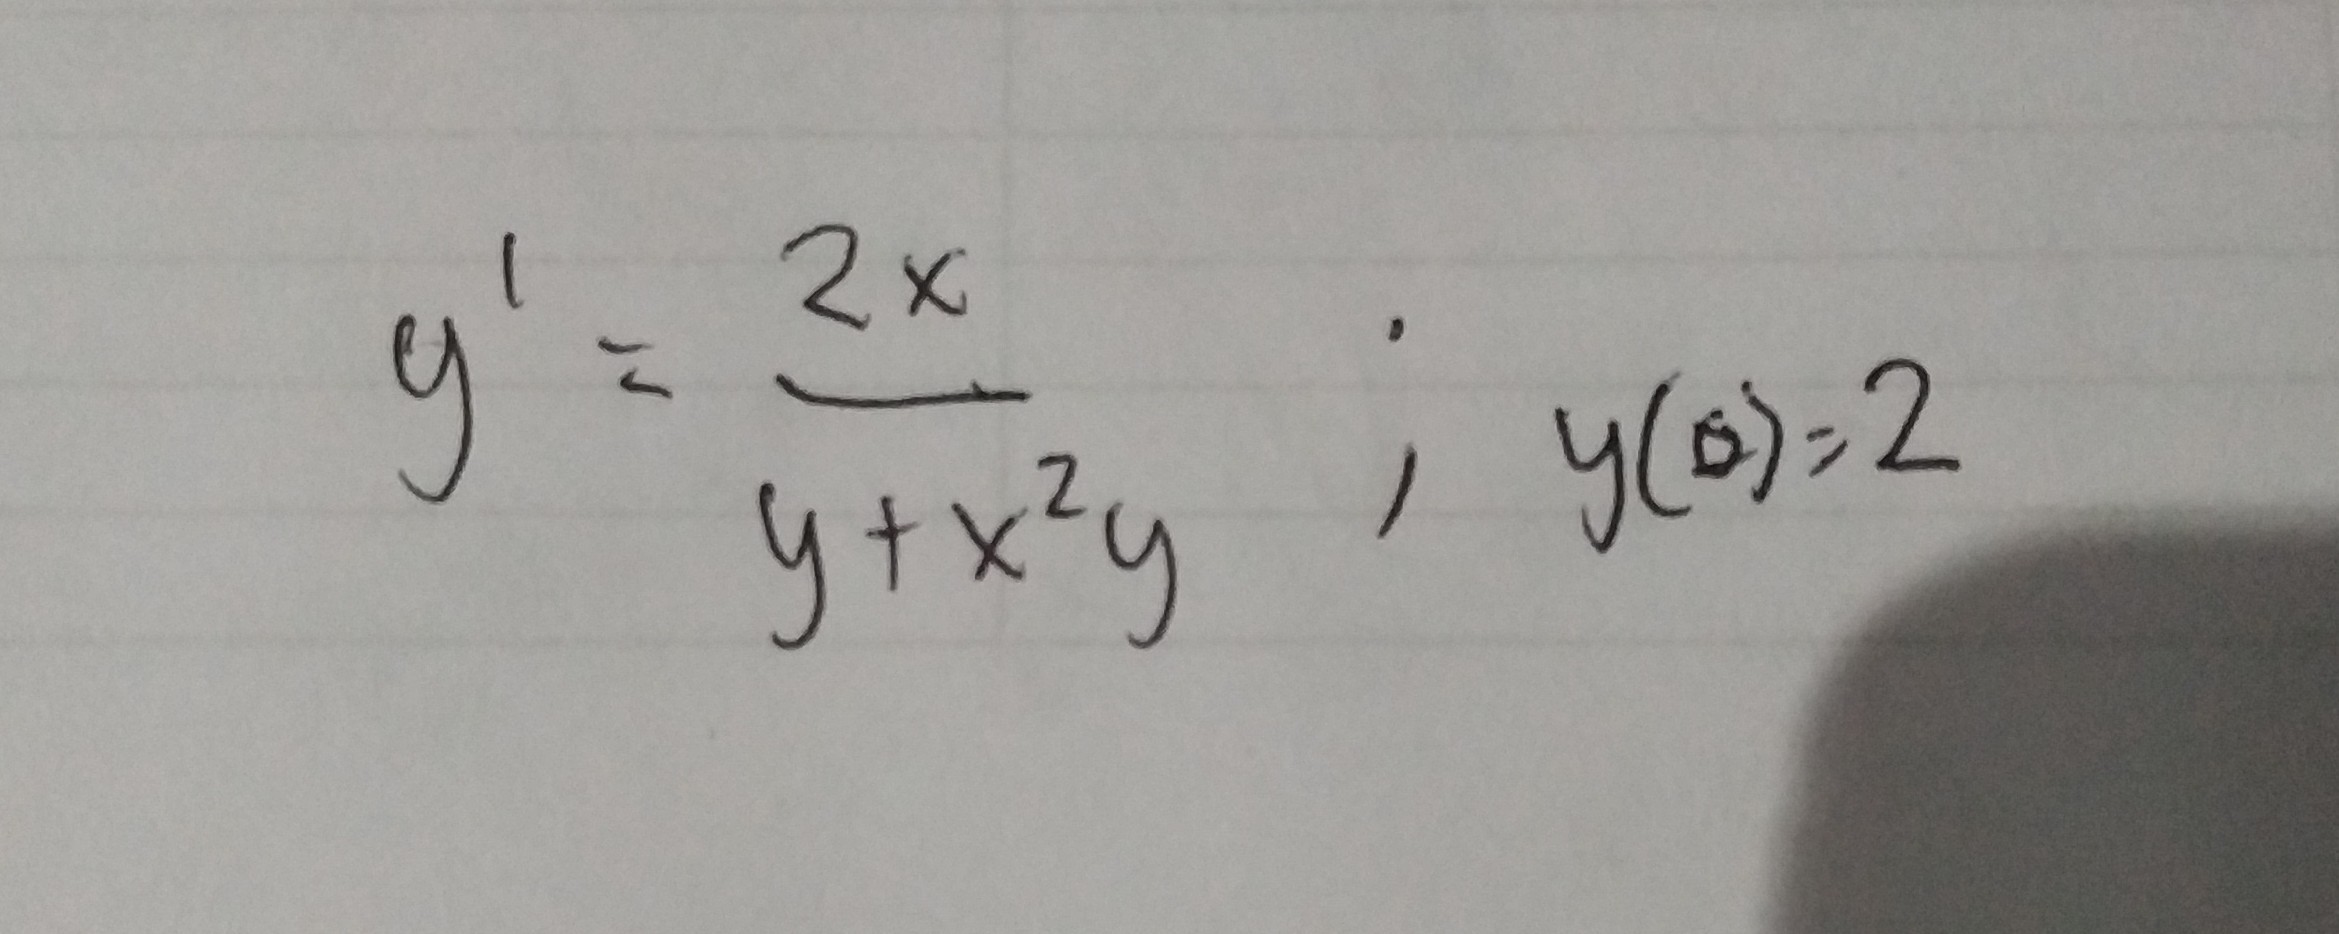 y' = 2x / (y + x²y) ; y(0) = 2